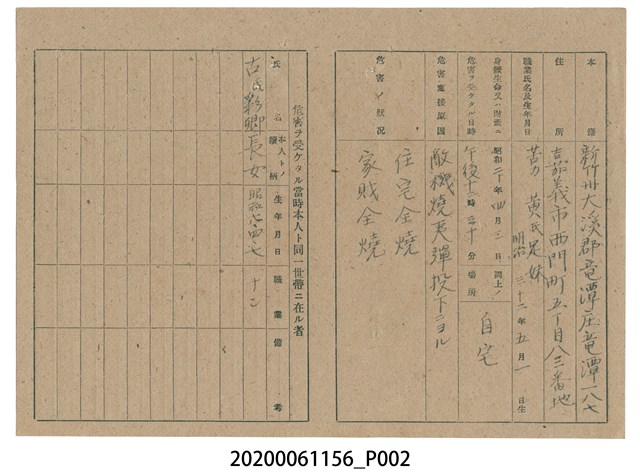 本籍 新竹州大溪郡竜潭庄竜潭一八七
住所 嘉義市西門町五丁目八三番地
職業氏名及生年月日 黄氏足妹 明治三十二年五月一日生
身體生命又ハ財產ニ危害ヲ受ケタル日時 昭和二十年四月三日 午後十二時三十分 同上ノ場所 自宅
危害直接原因 敵機燒夷彈投下ニヨル
危害ノ狀況 住宅全燒
家財全燒
危害ヲ受ケタル當時本人ト同一世帶ニ在ル者
氏名 本人トノ續柄 生年月日 職業 備考
古氏彩卿 長女 昭和
20200061156_P002